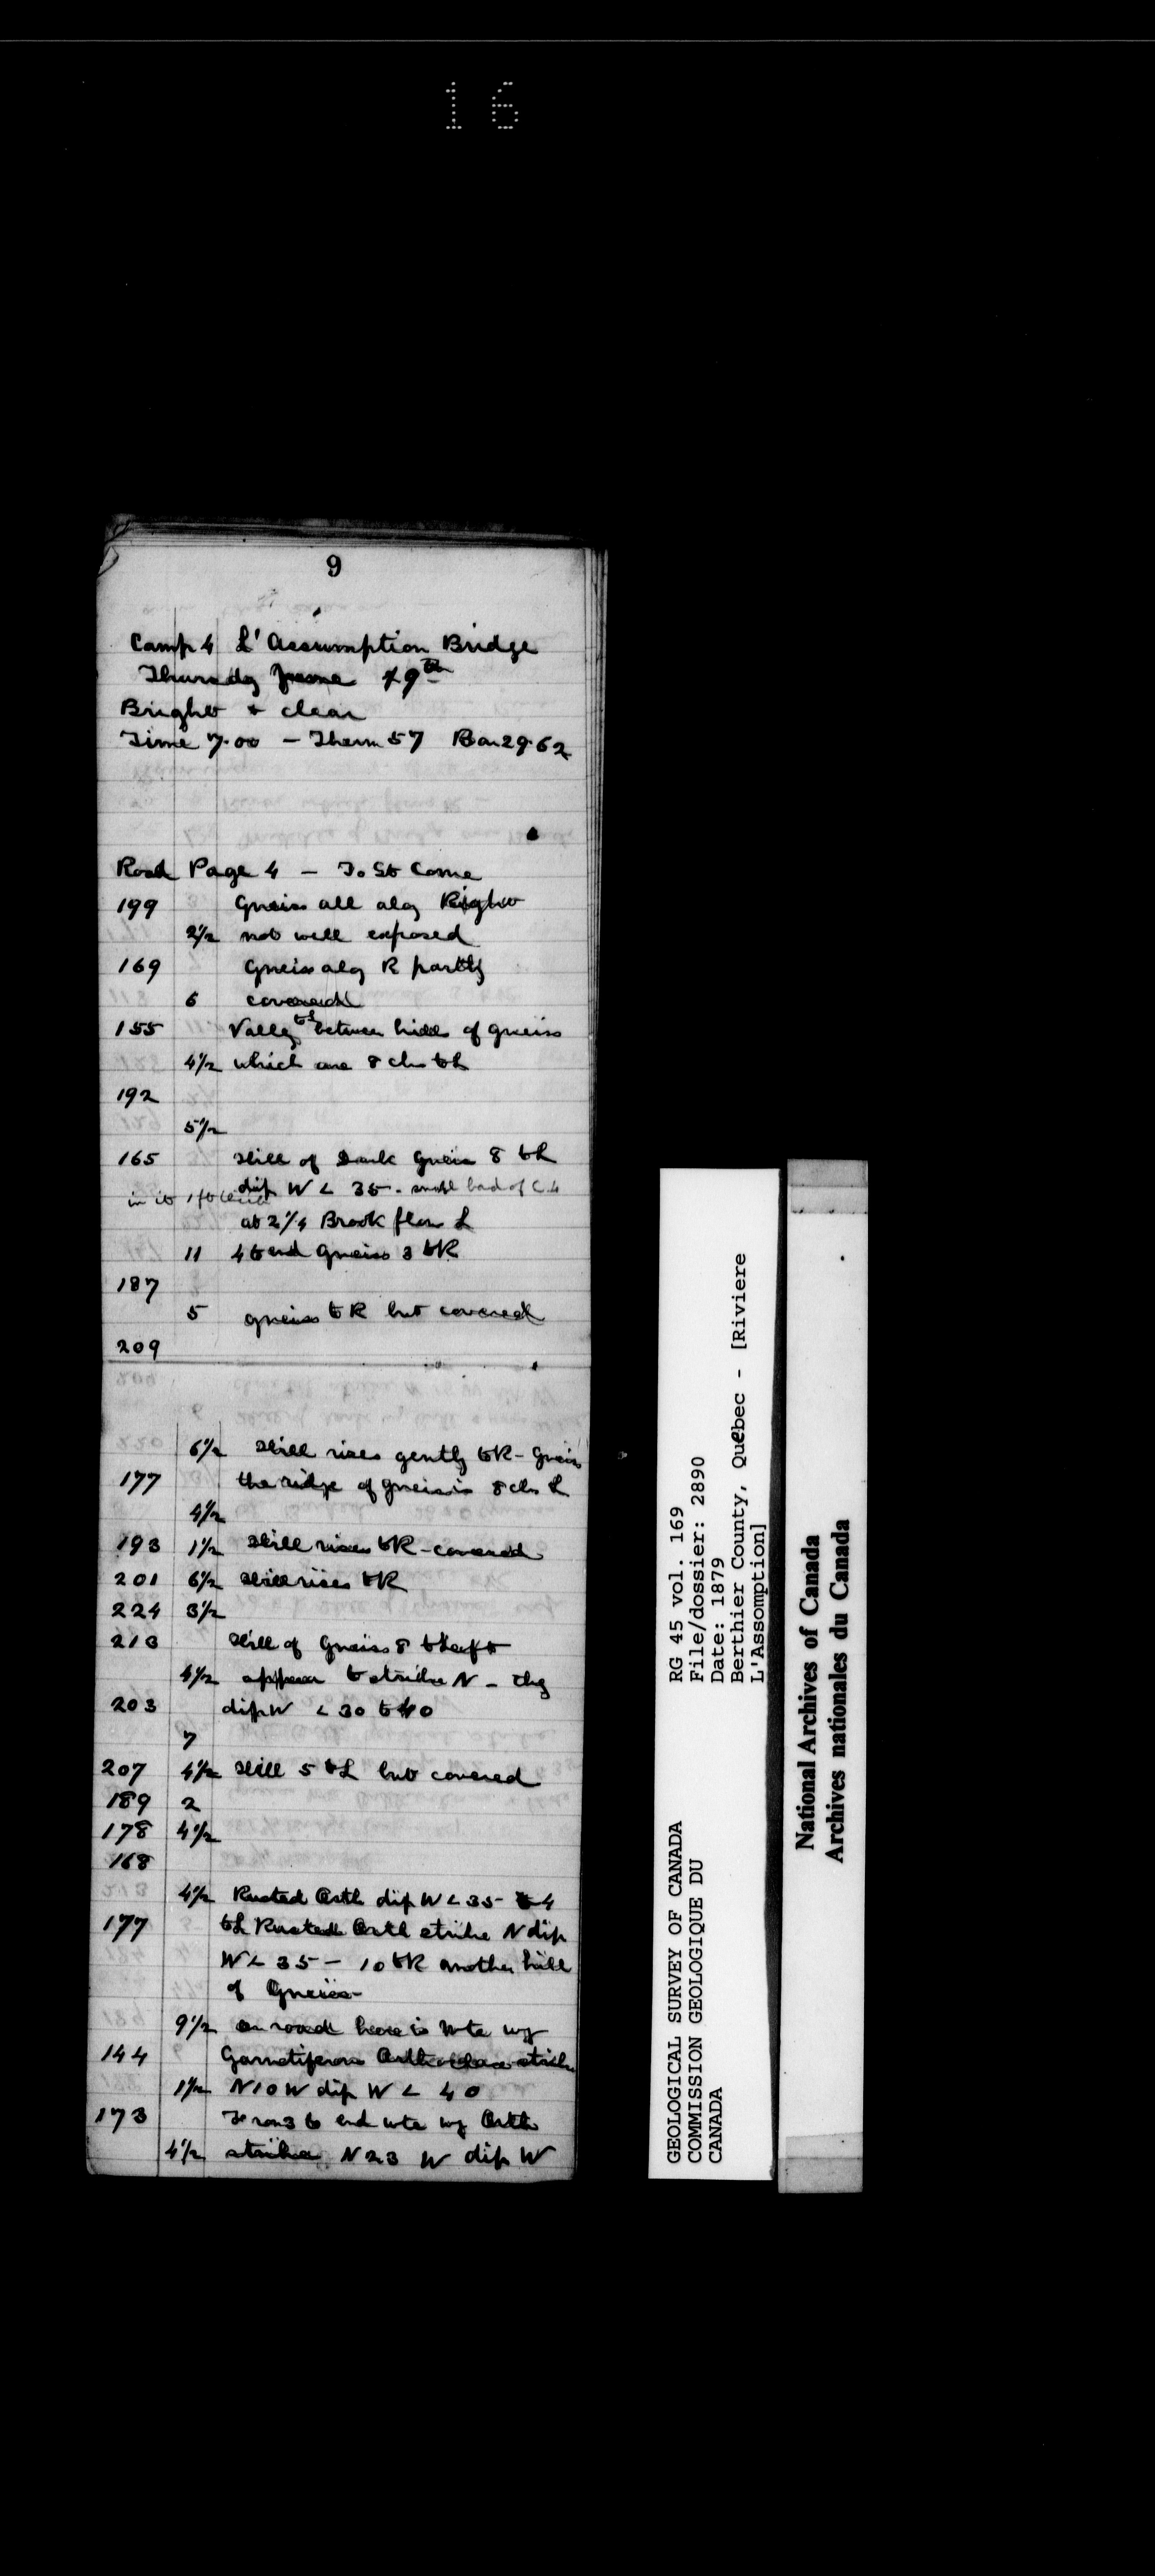 16
9
Camp 4 L'Assumption Bridge
Thursday June 19th
Bright & clear
Time 7.00 - Therm 57 Bar 29.62
Road Page 4 - To St Come
199 Gneiss all alg Right
2½ not well exposed
169 Gneiss alg R partly
6 covered
155 Valley to L between hills of gneiss
4½ which are 8 chs to L
192
5½
165 Hill of Dark Gneiss 8 to L
dip W < 35 - small bed of
in it 1 ft
at 2¼ Brook flows L
11 4 to end Gneiss 3 to R
187
5 gneiss to R but covered
209
6½ Hill rises gently to R - Gneiss
177 the ridge of gneiss is 8 chs L
4½
193 1½ Hill rises to R - covered
201 6½ Hill rises to R
224 3½
213 Hill of Gneiss 8 to Left
4½ appear to strike N - they
203 dip W < 30 to 40
7
207 4½ Hill 5 to L but covered
189 2
178 4½
168
4½ Rusted Orth dip W < 35 - 4
177 to L Rusted Orth strike N dip
W < 35 - 10 to R another hill
of Gneiss -
9½ on road here is
144 Garnetiferous Orthoclase strike
1½ N 10 W dip W < 40
173 From 3 to end Orth
4½ strike N 23 W dip W
GEOLOGICAL SURVEY OF CANADA
COMMISSION GEOLOGIQUE DU
CANADA
RG 45 vol. 169
File/dossier: 2890
Date: 1879
Berthier County, Québec - [Riviere
L'Assomption]
National Archives of Canada
Archives nationales du Canada